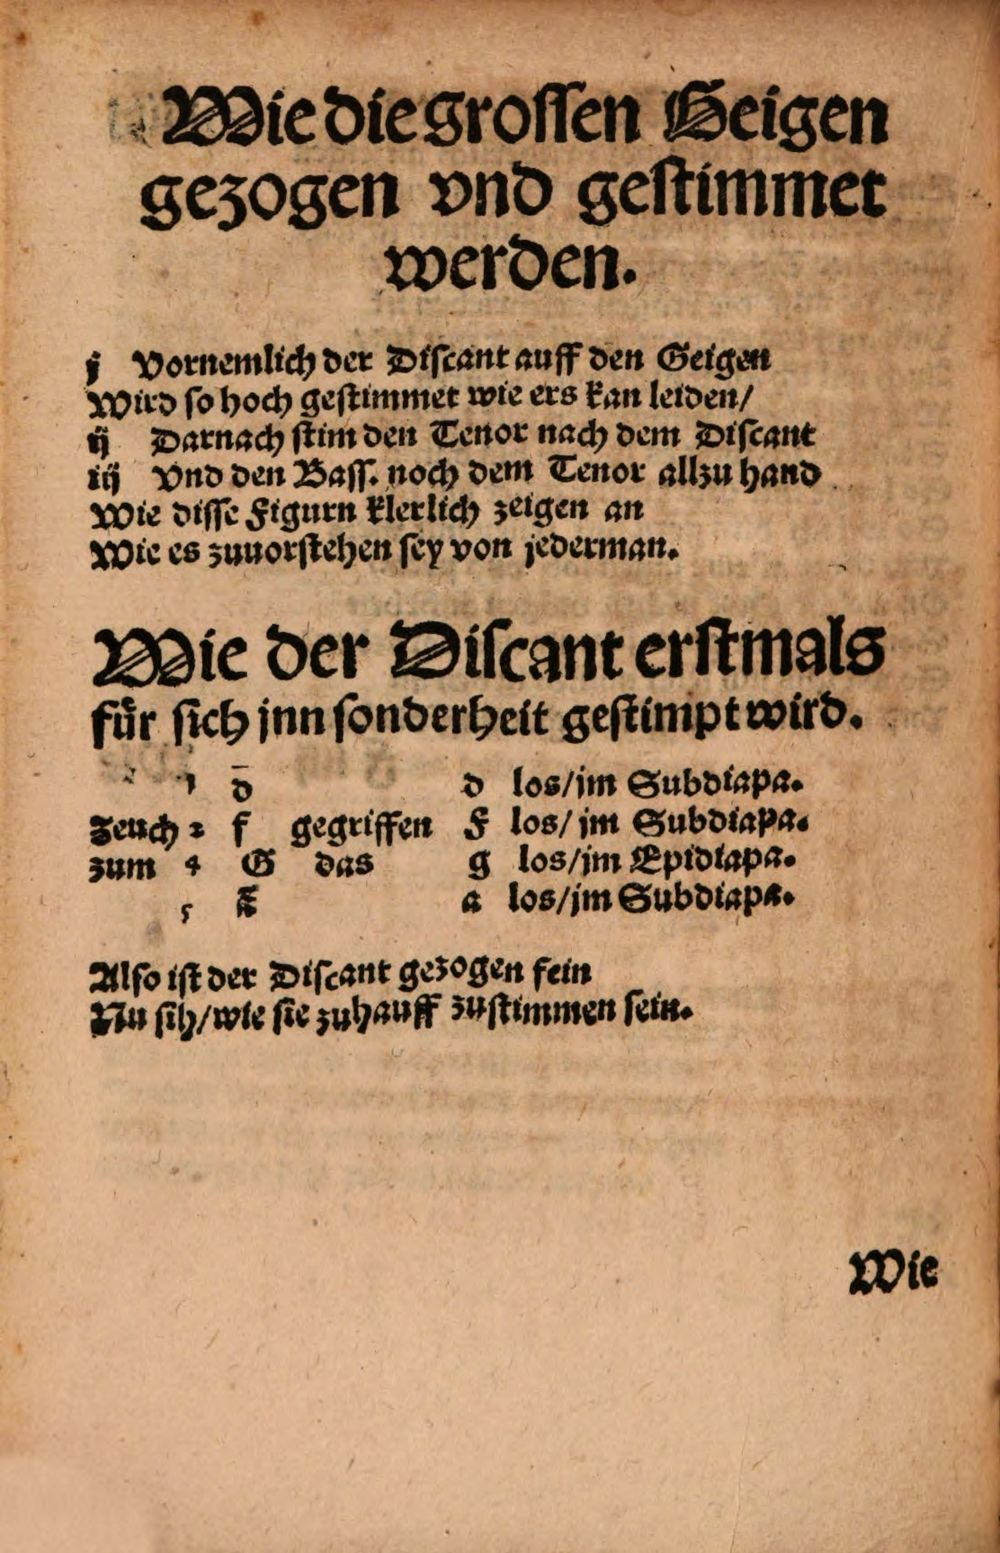 Wie die grossen Geigen
gezogen vnd gestimmet
werden.
j Vornemlich der Discant auff den Geigen
Wird so hoch gestimmet wie ers kan leiden/
ij Darnach stim den Tenor nach dem Discant
iij Vnd den Bass. noch dem Tenor allzu hand
Wie disse Figurn klerlich zeigen an
Wie es zuuorstehen sey von jederman.
Wie der Discant erstmals
für sich jnn sonderheit gestimpt wird.
1 d̄ d los/jm Subdiapa.
Zeuch 2 f gegriffen F los/jm Subdiapa.
zum 4 G das g los/jm Epidiapa.
5 ā a los/jm Subdiapa.
Also ist der Discant gezogen fein
Nu sih/wie sie zuhauff zustimmen sein.
Wie